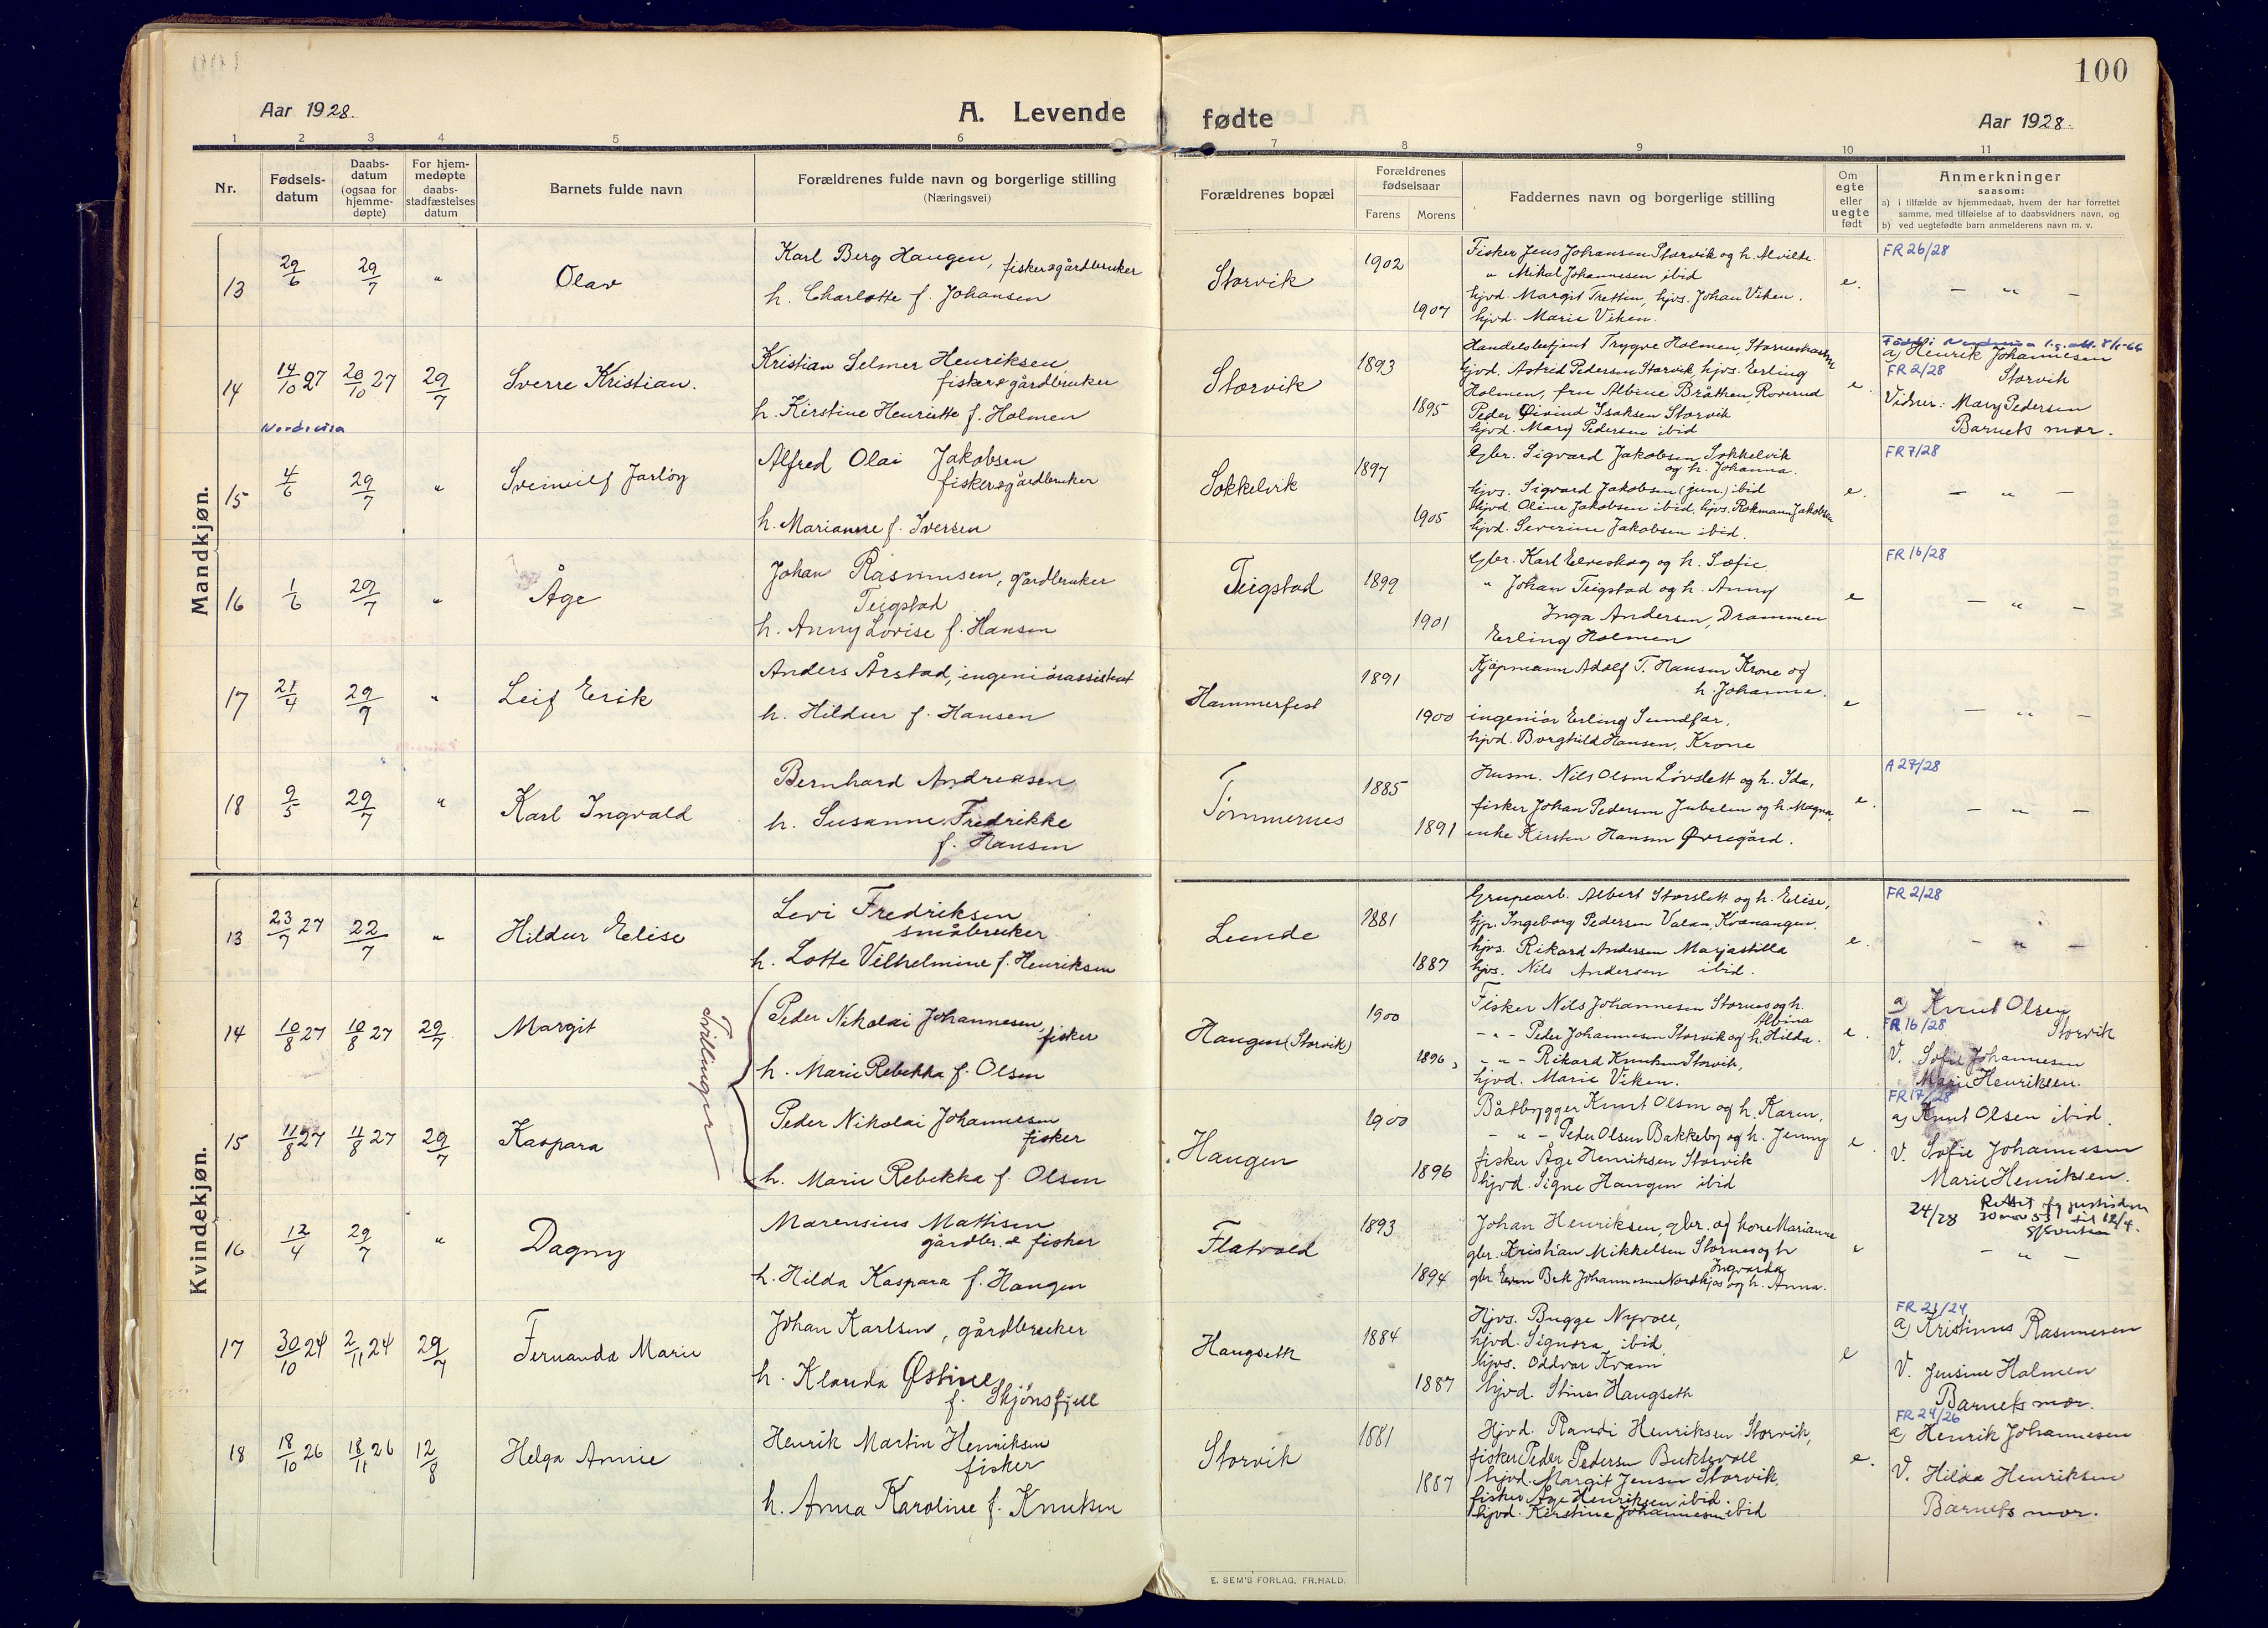 100
Aar 1928.
A. Levende fødte
Aar 1928.
1 2 3 4 5 6 7 8 9 10 11
Nr.
Fødsels-datum
Daabs-datum (ogsaa for hjemme-døpte)
For hjem-medøpte daabs-stadfæstelses datum
Barnets fulde navn
Forældrenes fulde navn og borgerlige stilling
(Næringsvei)
Forældrenes bopæl
Forældrenes fødselsaar
Farens Morens
Faddernes navn og borgerlige stilling
Om egte eller uegte født
Anmerkninger
saasom:
a) i tilfælde av hjemmedaab, hvem der har forrettet
samme, med tilføielse af to daabsvidners navn, og
b) ved uegtefødte barn anmelderens navn m. v.
Mandkjøn.
13 29/6 29/7 " Olav
Karl Berg Haugen, fisker og gårdbruker
h. Charlotte f. Johansen
Storvik 1902 1907
Fisker Jens Johansen Storvik og h. Alvilde
" Mikal Johannesen ibid
hjvd. Margit Trettin, hjvs. Johan Viken.
hjvd. Marie Viken.
e.
FR 26/28
— " —
14 14/10 27 20/10 27 29/7 Sverre Kristian.
Kristian Selmer Henriksen
fisker og gårdbruker
h. Kirstine Henriette f. Holmen
Storvik 1893 1895
Handelsbetjent Trygve Holmen,
hjvd. Astrid Pedersen Storvik, hjvs. Erling
Holmen, fru Albine Bråthen, Roverud
Peder Øivind Isaksen Storvik
hjvd. Mary Pedersen ibid
e.
a) Henrik Johannesen
FR 2/28 Storvik
Vidner: Mary Pedersen
Barnets mor.
15 4/6 29/7 " Sveinulf Jarlóg
Alfred Olai Jakobsen
fisker og gårdbruker
h. Marianne f. Iversen
Sokkelvik 1897 1905
Gbr. Sigvard Jakobsen Sokkelvik
og h. Johanna.
hjvs. Sigvard Jakobsen (jun.) ibid
hjvd. Oline Jakobsen ibid, hjvs. Rokmann Jakobsen
hjvd. Severine Jakobsen ibid.
e.
FR 7/28
— " —
16 1/6 29/7 " Åge
Johan Rasmusen, gårdbruker
Teigstad
h. Anny Lovise f. Hansen
Teigstad 1899 1901
Gbr. Karl Elveskog og h. Sofie
" Johan Teigstad og h. Anny
Inga Andersen, Drammen
Erling Holmen
e
FR 16/28
— " —
17 21/4 29/7 " Leif Erik
Anders Årstad, ingeniörassistent
h. Hildur f. Hansen
Hammerfest 1891 1900
Kjøpmann Adolf T. Hansen Krone og
h. Johanne.
ingeniör Erling Sundfær,
hjvd. Borghild Hansen, Krone
e
— " —
18 9/5 29/7 " Karl Ingvald
Bernhard Andreasen
h. Susanne Fredrikke
f. Hansen
Tömmernes 1885 1891
Husm. Nils Olsen Lövslett og h. Ida,
fisker Johan Pedersen Jubelen og h. Magna,
enke Kirsten Hansen Øvregård.
e.
A 27/28
— " —
Kvindekjøn.
13 23/7 27 22/7 " Hildur Elise
Levi Fredriksen
småbruker
h. Lotte Vilhelmine f. Henriksen
Lunde 1881 1887
Grupearb. Albert Storslett og h. Elise,
hjp. Ingeborg Pedersen Valan, Kvænangen,
hjvs. Rikard Andersen Marjastilla
hjvs. Nils Andersen ibid.
e.
FR 2/28
— " —
14 10/8 27 10/8 27 29/7 Margit
Tvillinger
Peder Nikolai Johannesen,
fisker
h. Marie Rebekka f. Olsen
Haugen (Storvik) 1900 1896
Fisker Nils Johannesen Stornes og h.
Albina
- " - Peder Johannesen Storvik og h. Hilda.
- " - Rikard Knutsen Storvik,
hjvd. Marie Viken.
e.
a) Knut Olsen
FR 16/28 Storvik
V. Sofie Johannesen
Marie Henriksen.
15 11/8 27 11/8 27 29/7 Kaspara
Peder Nikolai Johannesen
fisker
h. Marie Rebekka f. Olsen
Haugen 1900 1896
Båtbygger Knut Olsen og h. Karen,
- " - Peder Olsen Bakkeby og h. Jenny
fisker Åge Henriksen Storvik
hjvd. Signe Haugen ibid
e
FR 17/28
a) Knut Olsen ibid.
V. Sofie Johannesen
Marie Henriksen.
16 12/4 29/7 " Dagny
Marensius Mattisen
gårdbr. & fisker
h. Hilda Kaspara f. Haugen
Flatvold 1893 1894
Johan Henriksen, gbr. og kone Marianne
gbr. Kristian Mikkelsen Stornes og h
Ingvarda
gbr. Even Bek Johannesen Nordkjos og h. Anna.
e
24/28 Rettet
— " —
17 30/10 24 2/11 24 29/7 Fernanda Marie
Johan Karlsen, gårdbruker
h. Klauda Østine
f. Skjönsfjell
Haugseth 1884 1887
Hjvs. Bugge Nyvoll,
hjvd. Signora ibid,
hjvs. Oddvar Kvam
hjvd. Stine Haugseth
e
FR 21/24
a) Kristinus Rasmusen
V. Jensine Holmen
Barnets mor.
18 18/10 26 18/11 26 12/8 Helga Annie
Henrik Martin Henriksen
fisker
h. Anna Karoline f. Knutsen
Storvik 1881 1887
Hjvd. Randi Henriksen Storvik,
fisker Peder Pedersen Buktevoll
hjvd. Margit Jensen Storvik,
fisker Åge Henriksen ibid.
hjvd. Kirstine Johannesen ibid
e.
FR 24/26
a) Henrik Johannesen
V. Hilda Henriksen
Barnets mor.
E. SEM'S FORLAG, FR.HALD.